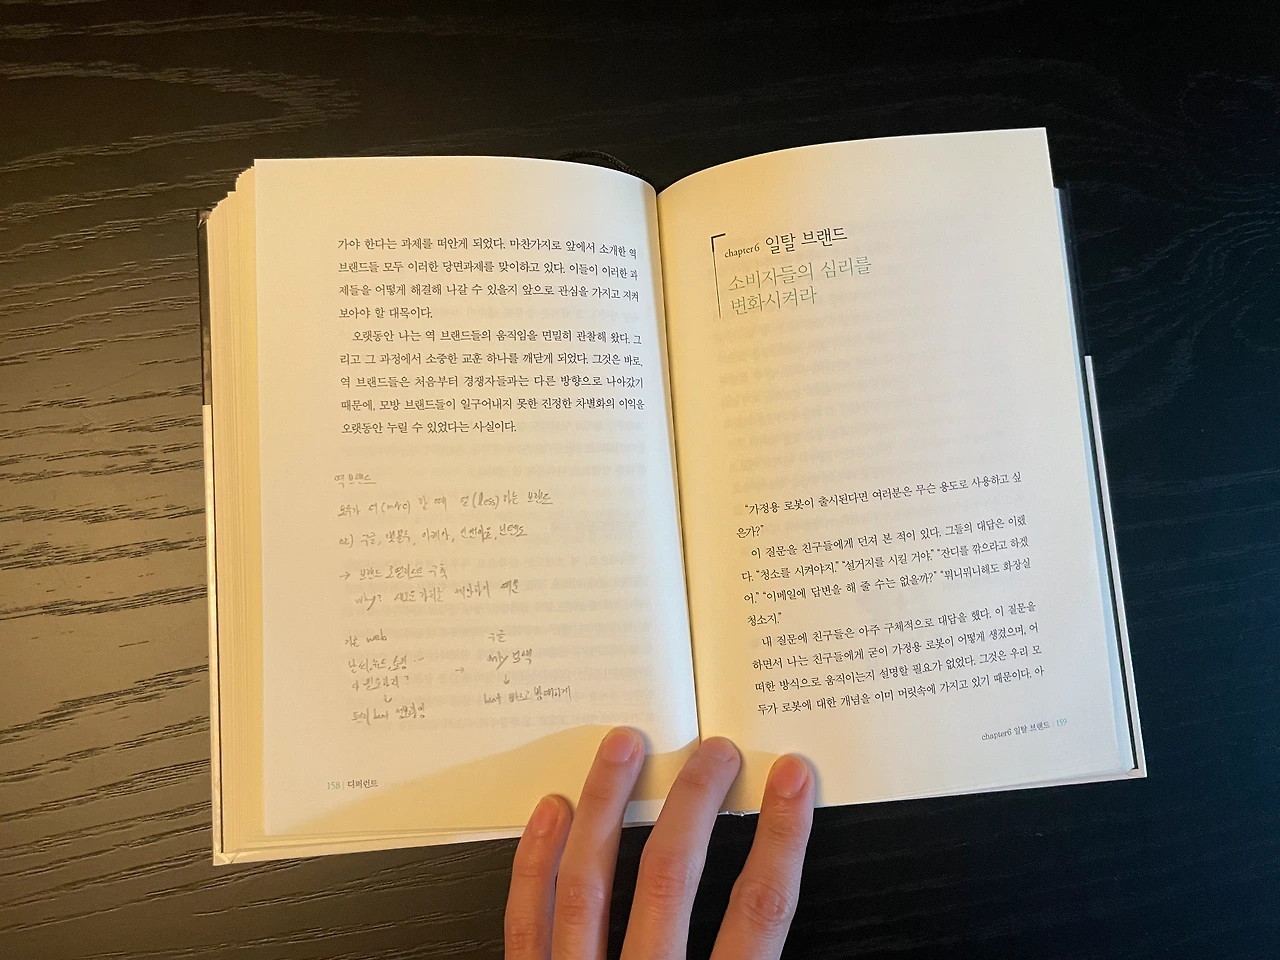 가야 한다는 과제를 떠안게 되었다. 마찬가지로 앞에서 소개한 역
브랜드들 모두 이러한 당면과제를 맞이하고 있다. 이들이 이러한 과
제들을 어떻게 해결해 나갈 수 있을지 앞으로 관심을 가지고 지켜
보아야 할 대목이다.
오랫동안 나는 역 브랜드들의 움직임을 면밀히 관찰해 왔다. 그
리고 그 과정에서 소중한 교훈 하나를 깨닫게 되었다. 그것은 바로,
역 브랜드들은 처음부터 경쟁자들과는 다른 방향으로 나아갔기
때문에, 모방 브랜드들이 일구어내지 못한 진정한 차별화의 이익을
오랫동안 누릴 수 있었다는 사실이다.
역 브랜드
모두가 더(more) 할 때 덜(less) 하는 브랜드
ex) 구글, 젯블루, 이케아, 인앤아웃, 닌텐도
→ 브랜드 로열리스트 구축
why?
기존 web
구글
날씨, 뉴스, 쇼핑 ...
only 검색
다 필요하지?
158 | 디퍼런트
chapter6 일탈 브랜드
소비자들의 심리를
변화시켜라
"가정용 로봇이 출시된다면 여러분은 무슨 용도로 사용하고 싶
은가?"
이 질문을 친구들에게 던져 본 적이 있다. 그들의 대답은 이랬
다. "청소를 시켜야지." "설거지를 시킬 거야." "잔디를 깎으라고 하겠
어." "이메일에 답변을 해 줄 수는 없을까?" "뭐니뭐니해도 화장실
청소지."
내 질문에 친구들은 아주 구체적으로 대답을 했다. 이 질문을
하면서 나는 친구들에게 굳이 가정용 로봇이 어떻게 생겼으며, 어
떠한 방식으로 움직이는지 설명할 필요가 없었다. 그것은 우리 모
두가 로봇에 대한 개념을 이미 머릿속에 가지고 있기 때문이다. 아
chapter6 일탈 브랜드 | 159